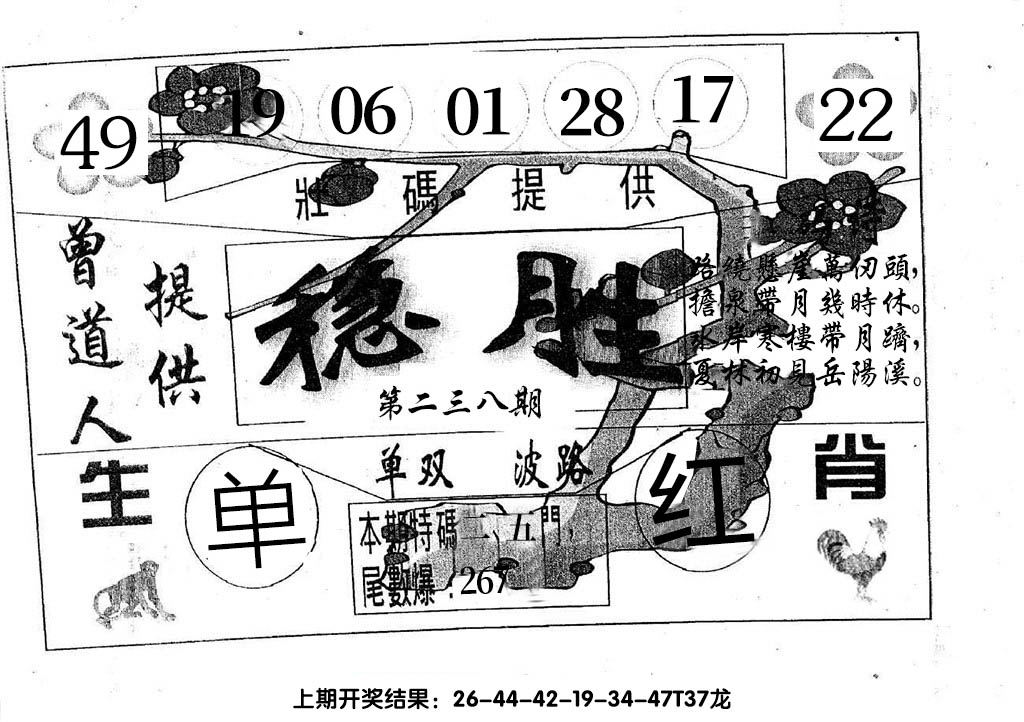 49 19 06 01 28 17 22
壯碼提供
曾道人
提供
稳胜
第二三八期
路繞懸崖萬仞頭,
擔泉帶月幾時休。
水岸寒樓帶月躋,
夏林初見岳陽溪。
单双 波路
生
单
红
肖
本期特碼二、五門,
尾數爆:267
上期开奖结果：26-44-42-19-34-47T37龙